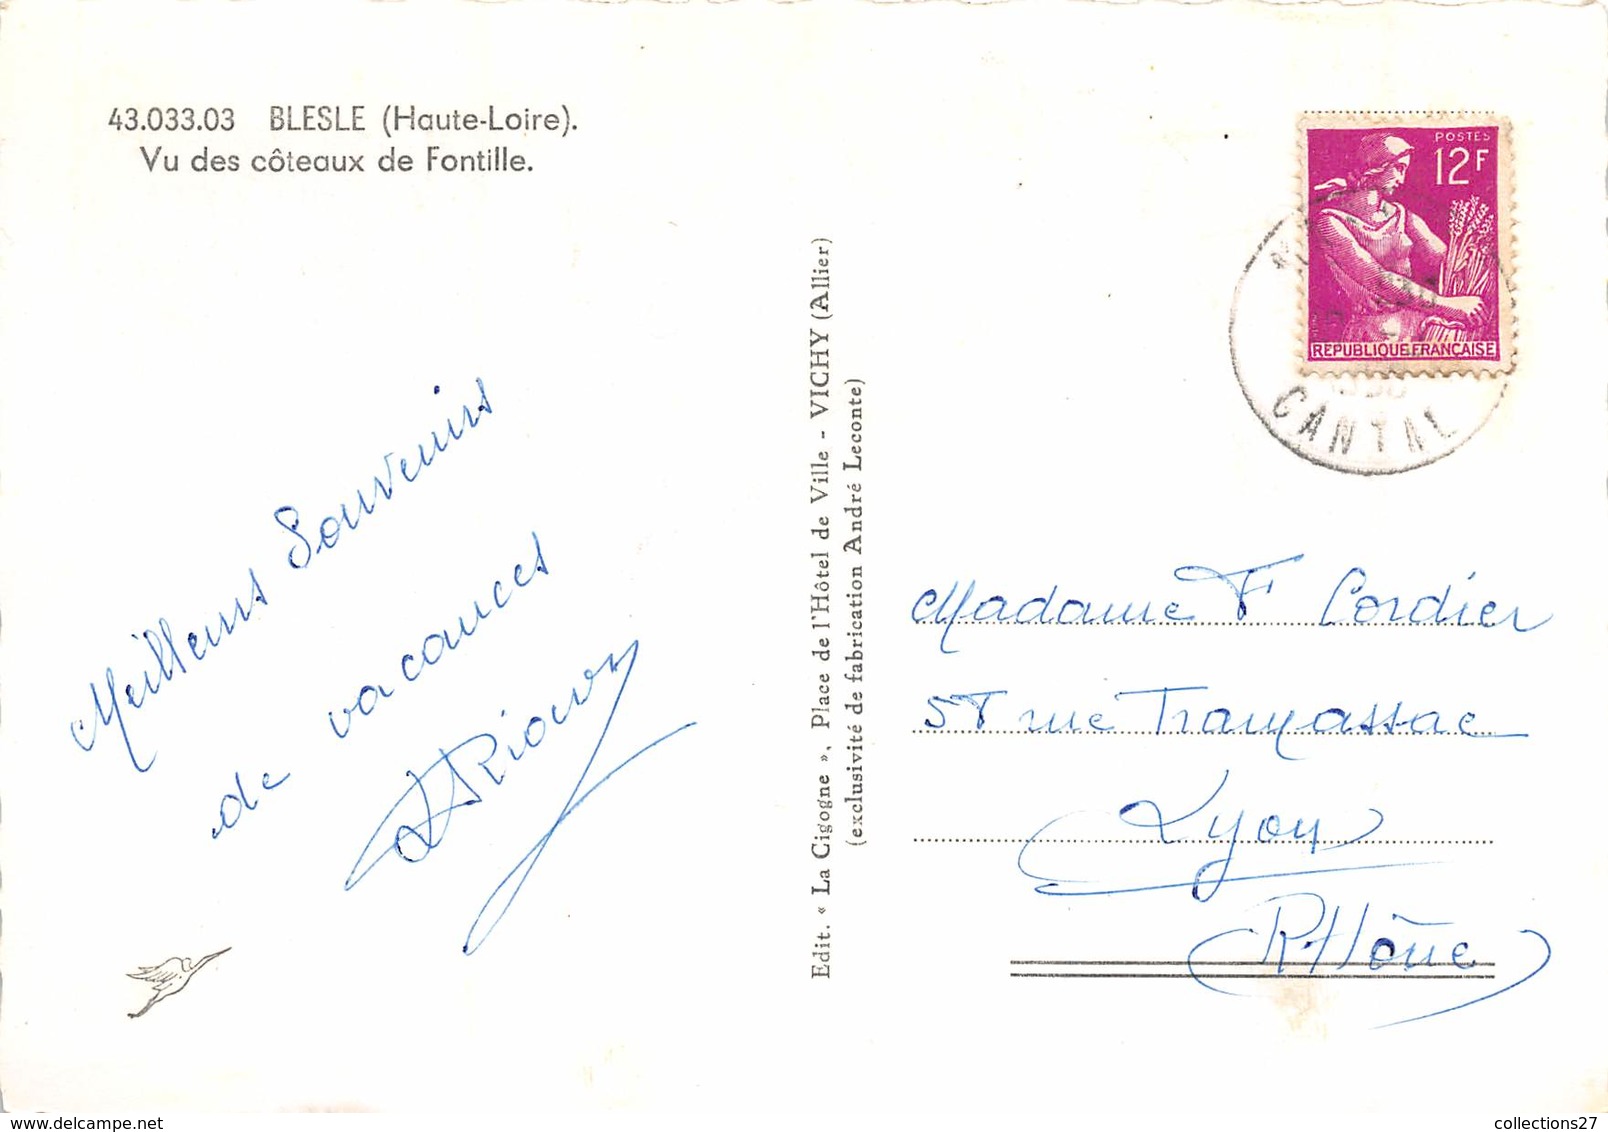 43.033.03 BLESLE (Haute-Loire).
Vu des côteaux de Fontille.
Meilleurs Souvenirs
de vacances
Edit. « La Cigogne », Place de l'Hôtel de Ville - VICHY (Allier)
(exclusivité de fabrication André Leconte)
POSTES
12F
REPUBLIQUE FRANÇAISE
CANTAL
Madame F Cordier
rue Tramassac
Lyon
Rhône
collections27